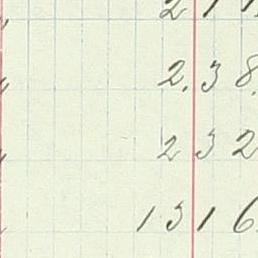 2.38.
2 32
1316